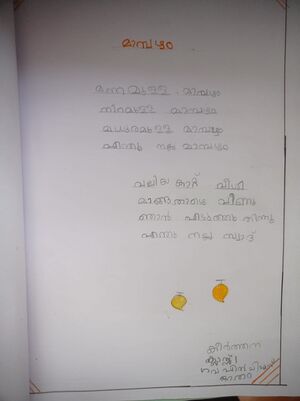 മാമ്പഴം
മണമുള്ള മാമ്പഴം
നിറമുള്ള മാമ്പഴം
മധുരമുള്ള മാമ്പഴം
എന്തു നല്ല മാമ്പഴം
വലിയ കാറ്റ് വീശി
മാങ്ങ താഴെ വീണു
ഞാൻ എടുത്തു തിന്നു
എന്തു നല്ല സ്വാദ്
കീർത്തന
ക്ലാസ്സ് 1